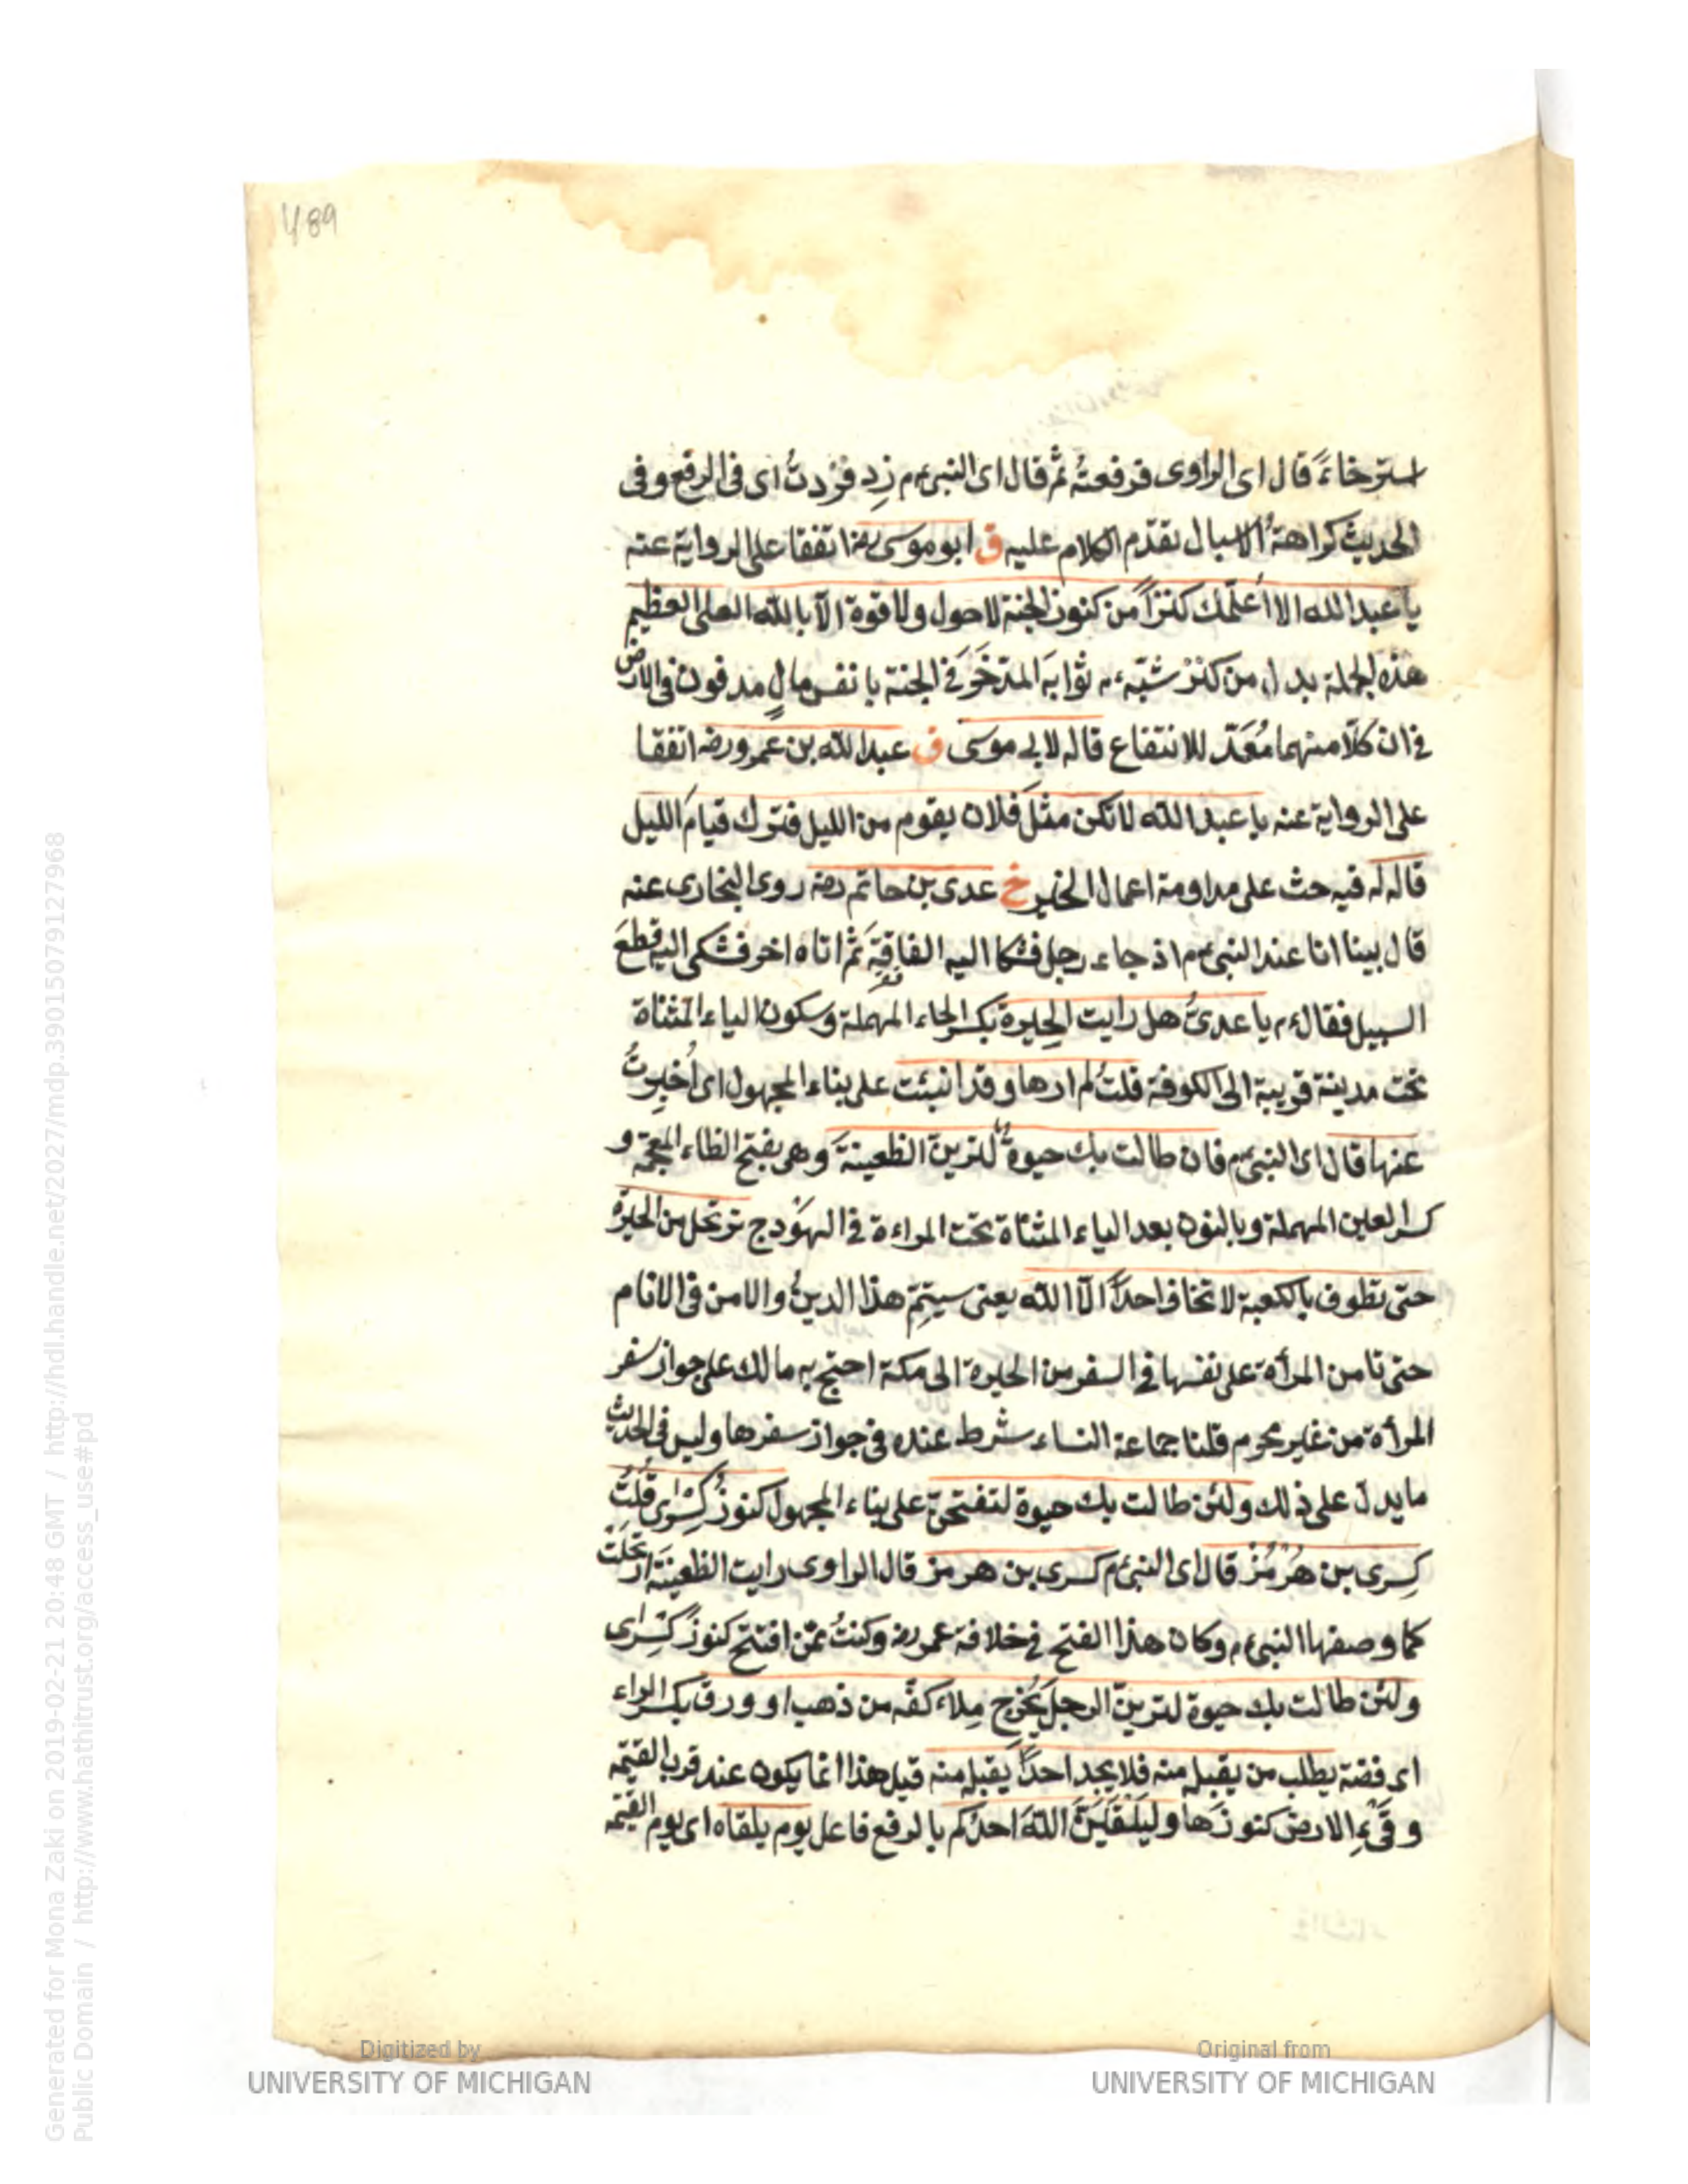 489
استرخاءً قال اى الراوى فرفعتُه ثم قال اى النبى ءم زِد فزدتُ اى فى الرفع وفى
الحديث كراهةُ الاسبال تقدّم الكلام عليه ق ابو موسى رضه اتفقا على الرواية عنه
يا عبد الله الا اُعلّمك كنزاً من كنوز الجنة لا حول ولا قوة الّا بالله العلى العظيم
هذه الجملة بدل من كنز شبّه ءم ثوابه المدّخَر فى الجنة بانفس مالٍ مدفون فى الارض
فى ان كلّا منهما مُعَدّ للانتفاع قاله لابى موسى ق عبد الله بن عمرو رضه اتفقا
على الرواية عنه يا عبد الله لا تكن مثلَ فلان يقوم من الليل فترك قيامَ الليل
قاله له فيه حث على مداومة اعمال الخير خ عدى بن حاتم رضه روى البخارى عنه
قال بينا انا عند النبى ءم اذ جاء رجل فشكا اليه الفاقةَ ثم اتاه اخر فشكى اليه قطعَ
السبيل فقال ءم يا عدىُّ هل رايت الحِيرة بكسر الحاء المهملة وسكون الياء المثناة
تحت مدينة قريبة الى الكوفة قلتُ لم ارها وقد انبئت على بناء المجهول اى اُخبِرتُ
عنها قال اى النبى ءم فان طالت بك حيوةٌ لترينّ الظعينةَ وهى بفتح الظاء المعجمة و
كسر العين المهملة وبالنون بعد الياء المثناة تحت المراءة فى الهَوْدج ترتحل من الحيرة
حتى تطوف بالكعبة لا تخاف احدًا الّا الله يعنى سيتِمّ هذا الدينُ والامن فى الانام
حتى تامن المرأة على نفسها فى السفر من الحيرة الى مكة احتج به مالك على جواز سفر
المرأة من غير محرم قلنا جماعة النساء شرط عنده فى جواز سفرها وليس فى الحديث
ما يدل على ذلك ولئن طالت بك حيوة لتفتحنّ على بناء المجهول كنوزُ كِسْرٰى قُلتُ
كِسرى بن هُرْمُزْ قال اى النبى ءم كسرى بن هرمز قال الراوى رايت الظعينَة ارتحَلَتْ
كما وصفها النبى ءم وكان هذا الفتح فى خلافة عمر رضه وكنتُ ممّن افتتح كنوزَ كسْرٰى
ولئن طالت بك حيوة لترينّ الرجلَ يُخرِج مِلاءَ كفّه من ذهب او ورق بكسر الراء
اى فضة يطلب من يقبل منه فلا يجد احدًا يقبل منه قيل هذا انما يكون عند قرب القيٰمة
وقَىْءِ الارض كنوزَها وليَلْقَيَنّ اللهَ احدُكم بالرفع فاعل يوم يلقاه اى يوم القيٰمة
Digitized by
UNIVERSITY OF MICHIGAN
Original from
UNIVERSITY OF MICHIGAN
Generated for Mona Zaki on 2019-02-21 20:48 GMT / http://hdl.handle.net/2027/mdp.39015079127968
Public Domain / http://www.hathitrust.org/access_use#pd